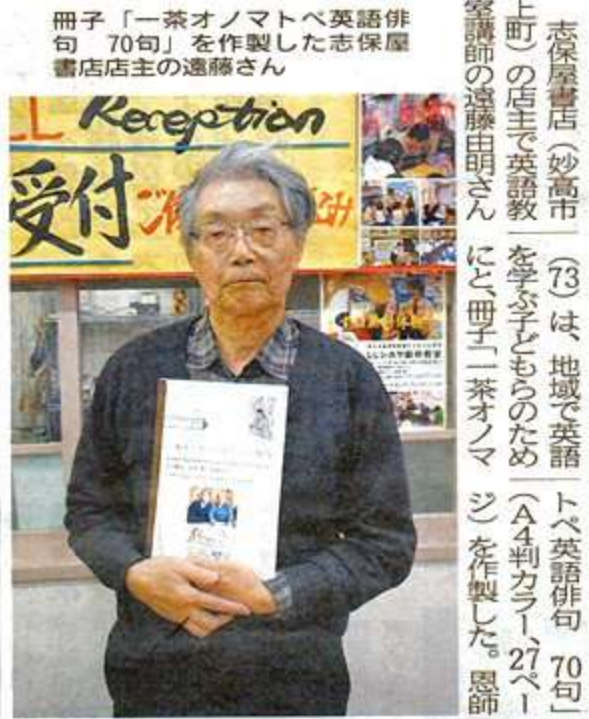 冊子「一茶オノマトペ英語俳
句　70句」を作製した志保屋
書店店主の遠藤さん
Reception
受付
志保屋書店（妙高市
上町）の店主で英語教
室講師の遠藤由明さん
（73）は、地域で英語
を学ぶ子どもらのため
にと、冊子「一茶オノマ
トペ英語俳句　70句」
（A4判カラー、27ペー
ジ）を作製した。恩師